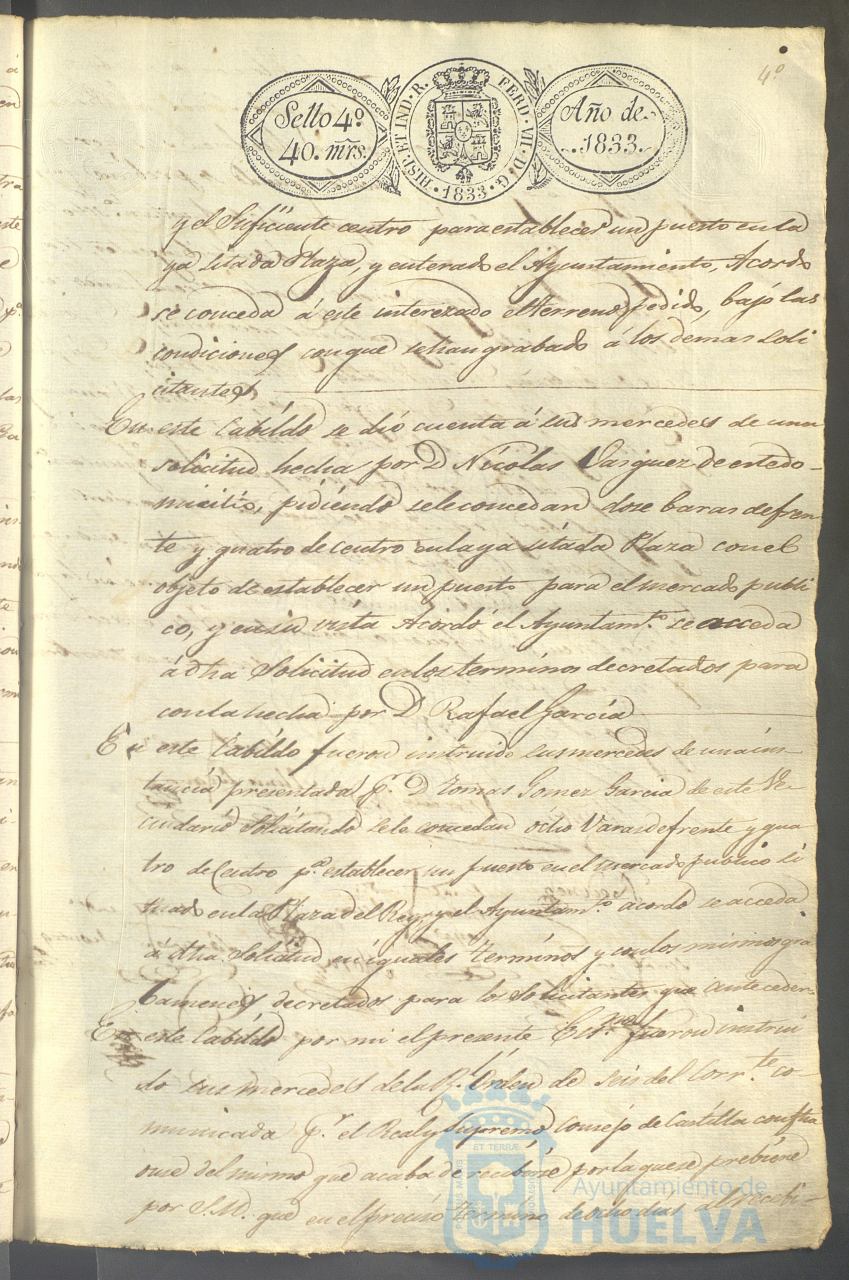 4º
Sello 4º
40. mrs.
HISP. ET IND. R. FERD. VII. D. G.
1833
Año de
1833.
y el suficiente centro para establecer un puesto en la
ya sitada Plaza, y enterado el Ayuntamiento, Acordo
se conceda á este interezado el terreno pedido, bajo las
condiciones con que se han grabado á los demas soli
citantes
En este Cabildo se dió cuenta á sus mercedes de una
solicitud hecha por D Nicolas Vasquez de este do-
micilio, pidiendo se le concedan dose baras de fren
te y quatro de centro en la ya sitada Plaza con el
objeto de establecer un puesto para el mercado publi
co, y en su vista Acordó el Ayuntamto. se acceda
á dha Solicitud en los terminos decretados para
con la hecha por D Rafael Garcia
En este Cabildo fueron instruido sus mercedes de una ins-
tancia presentada pr. D Tomas Gomez Garcia de este Ve-
cindario Solicitando se le concedan ocho Varas de frente y qua
tro de Centro pa. establecer un puesto en el mercado publico si
tuado en la Plaza del Rey, y el Ayuntamto. acordo se acceda
á dha Solicitud en iguales terminos y con los mismos gra
bamenes decretados para los Solicitantes que anteceden
En este Cabildo por mi el presente Essno. fueron instrui
do sus mercedes de la Rl. Orden de seis del Corrte. co-
municada pr. el Real y Supremo Consejo de Castilla con
del mismo que acaba de recibirse por la que se prebiene
por S.M. que en el preciso termino de ocho dias al recebi-
ET TERRÆ
Ayuntamiento de
HUELVA